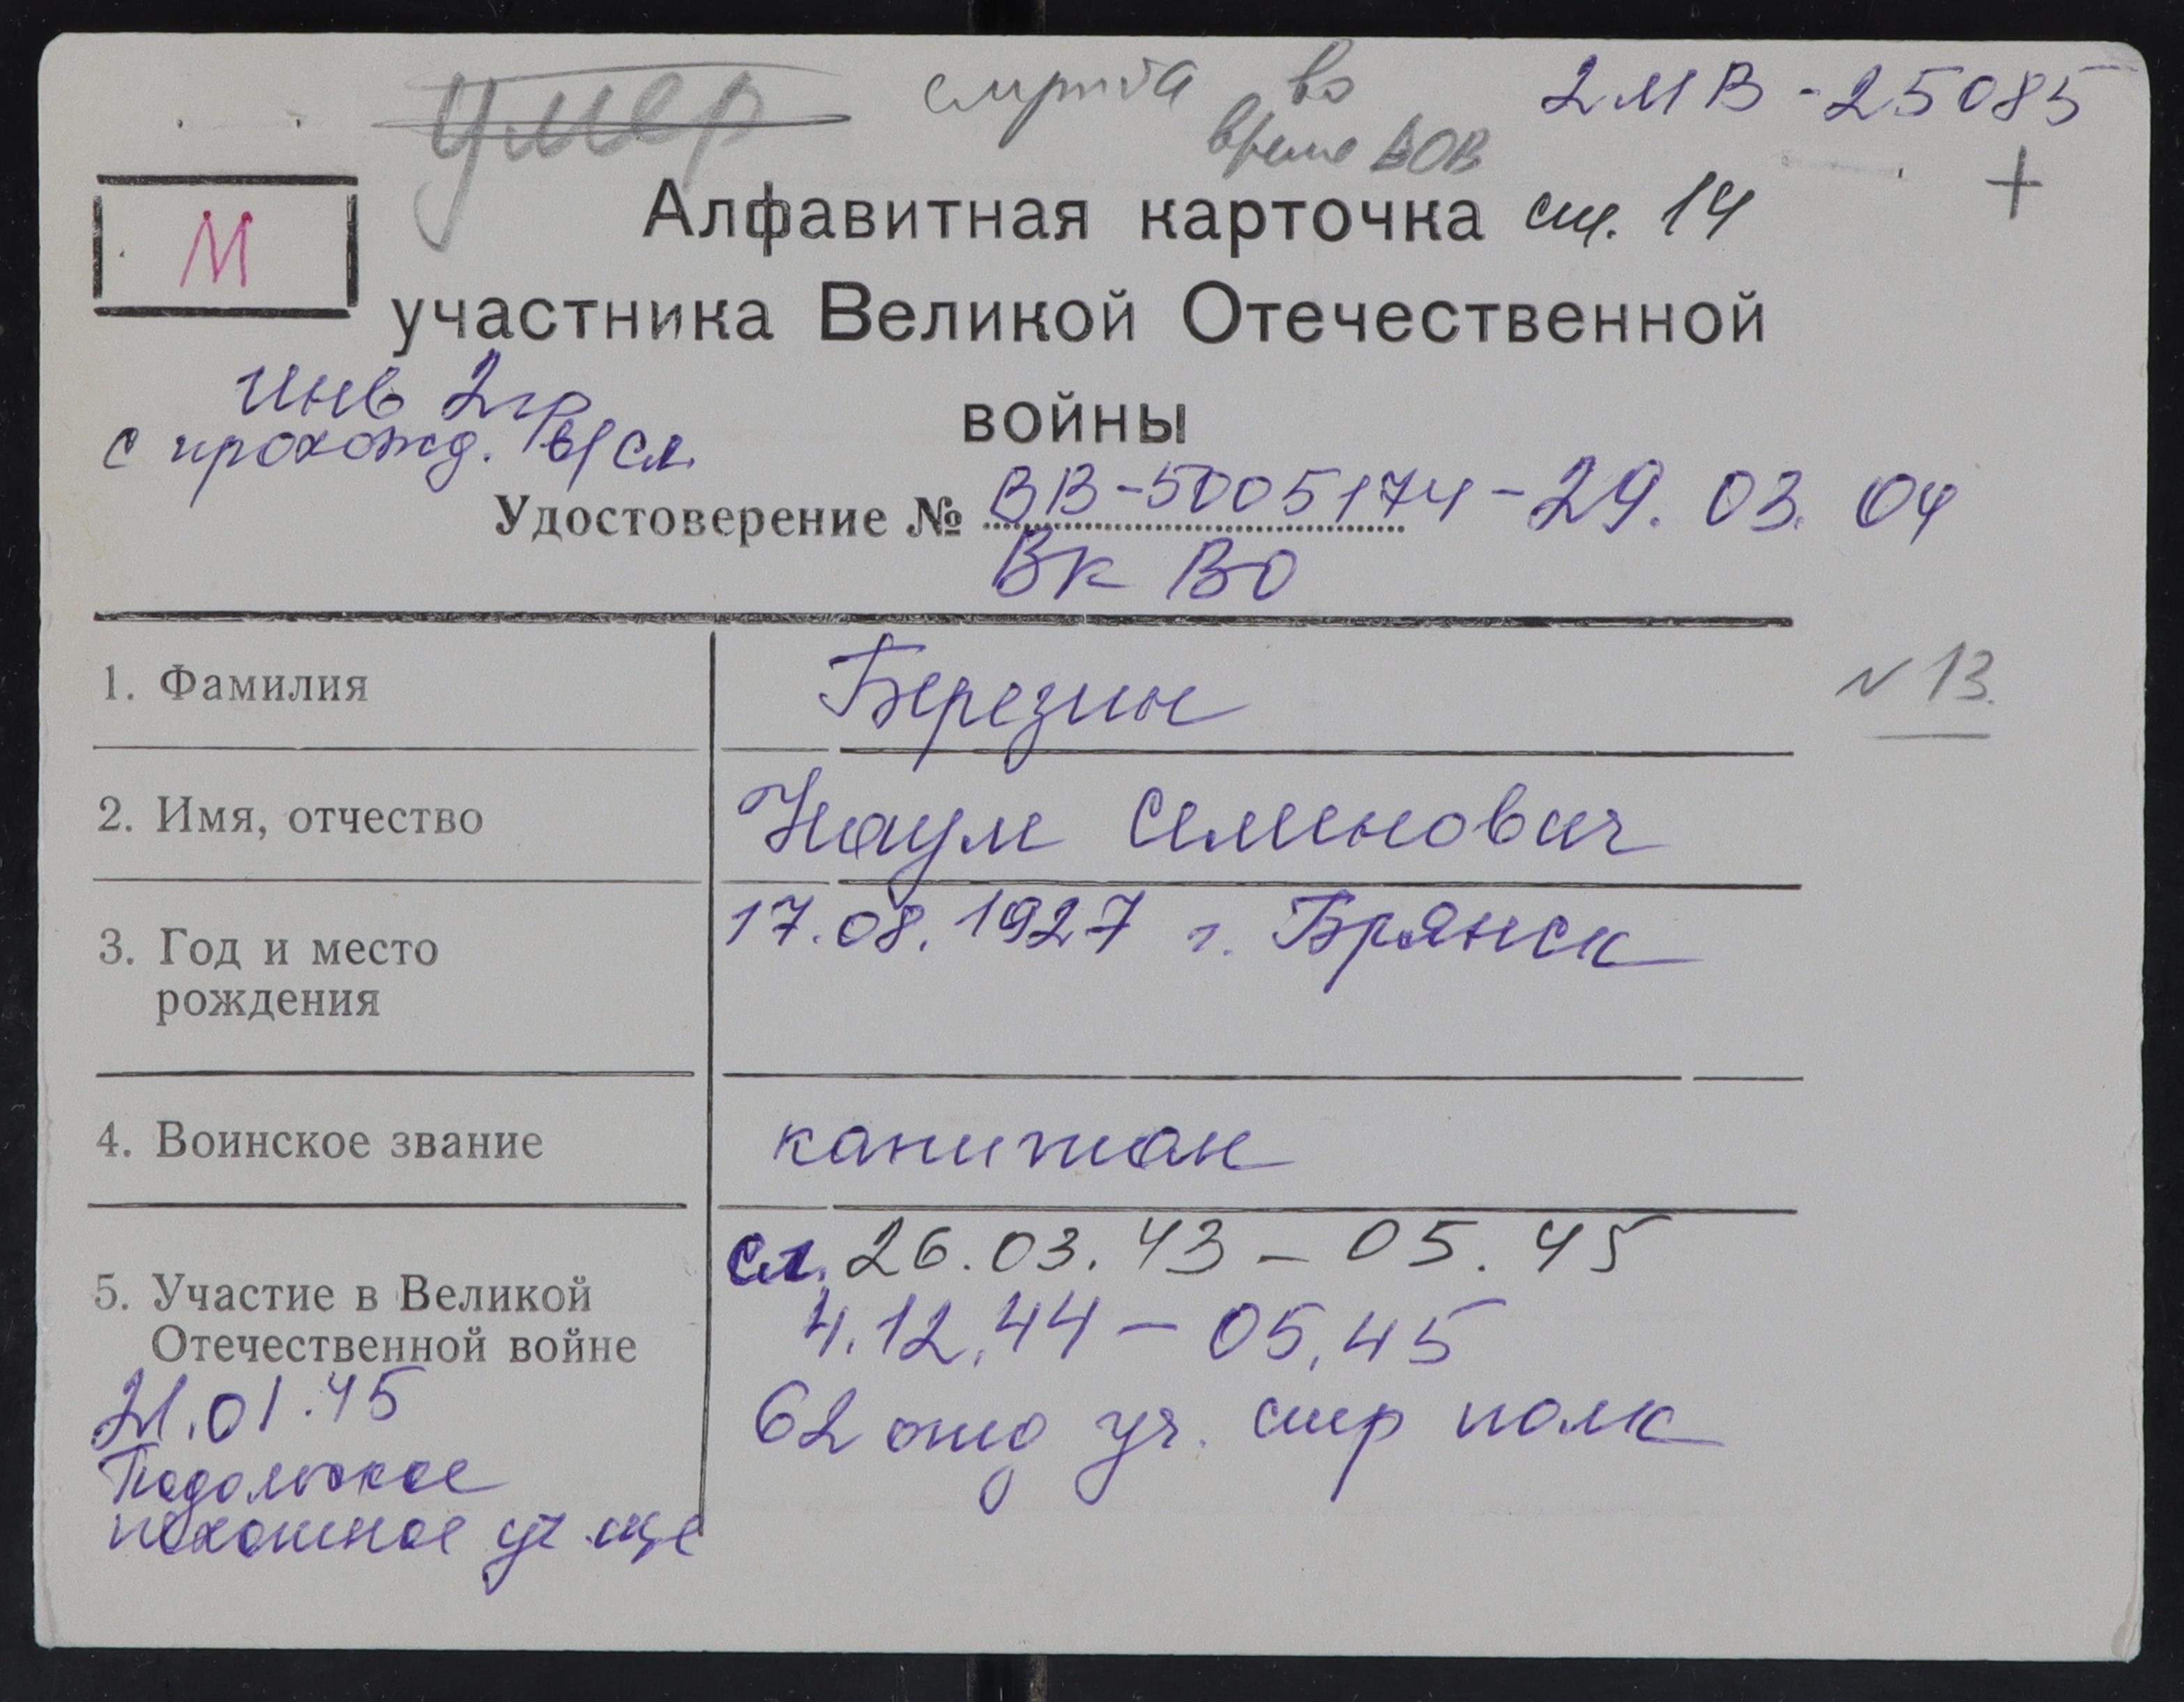 умер служба во 2 МВ - 25085
время ВОВ
+
М
Алфавитная карточка ст. 14
участника Великой Отечественной
войны
инв 2 гр
с прохожд. в/сл.
Удостоверение № ВВ-5005174 - 29. 03. 04
ВК ВО
1. Фамилия Березин
N 13.
2. Имя, отчество Наум Семенович
3. Год и место рождения 17.08.1927 г. Брянск
4. Воинское звание капитан
5. Участие в Великой Отечественной войне
сл. 26.03.43 – 05.45
4.12.44 – 05.45
62 отд уч. стр полк
21.01.45
Подольское
пехотное уч-ще